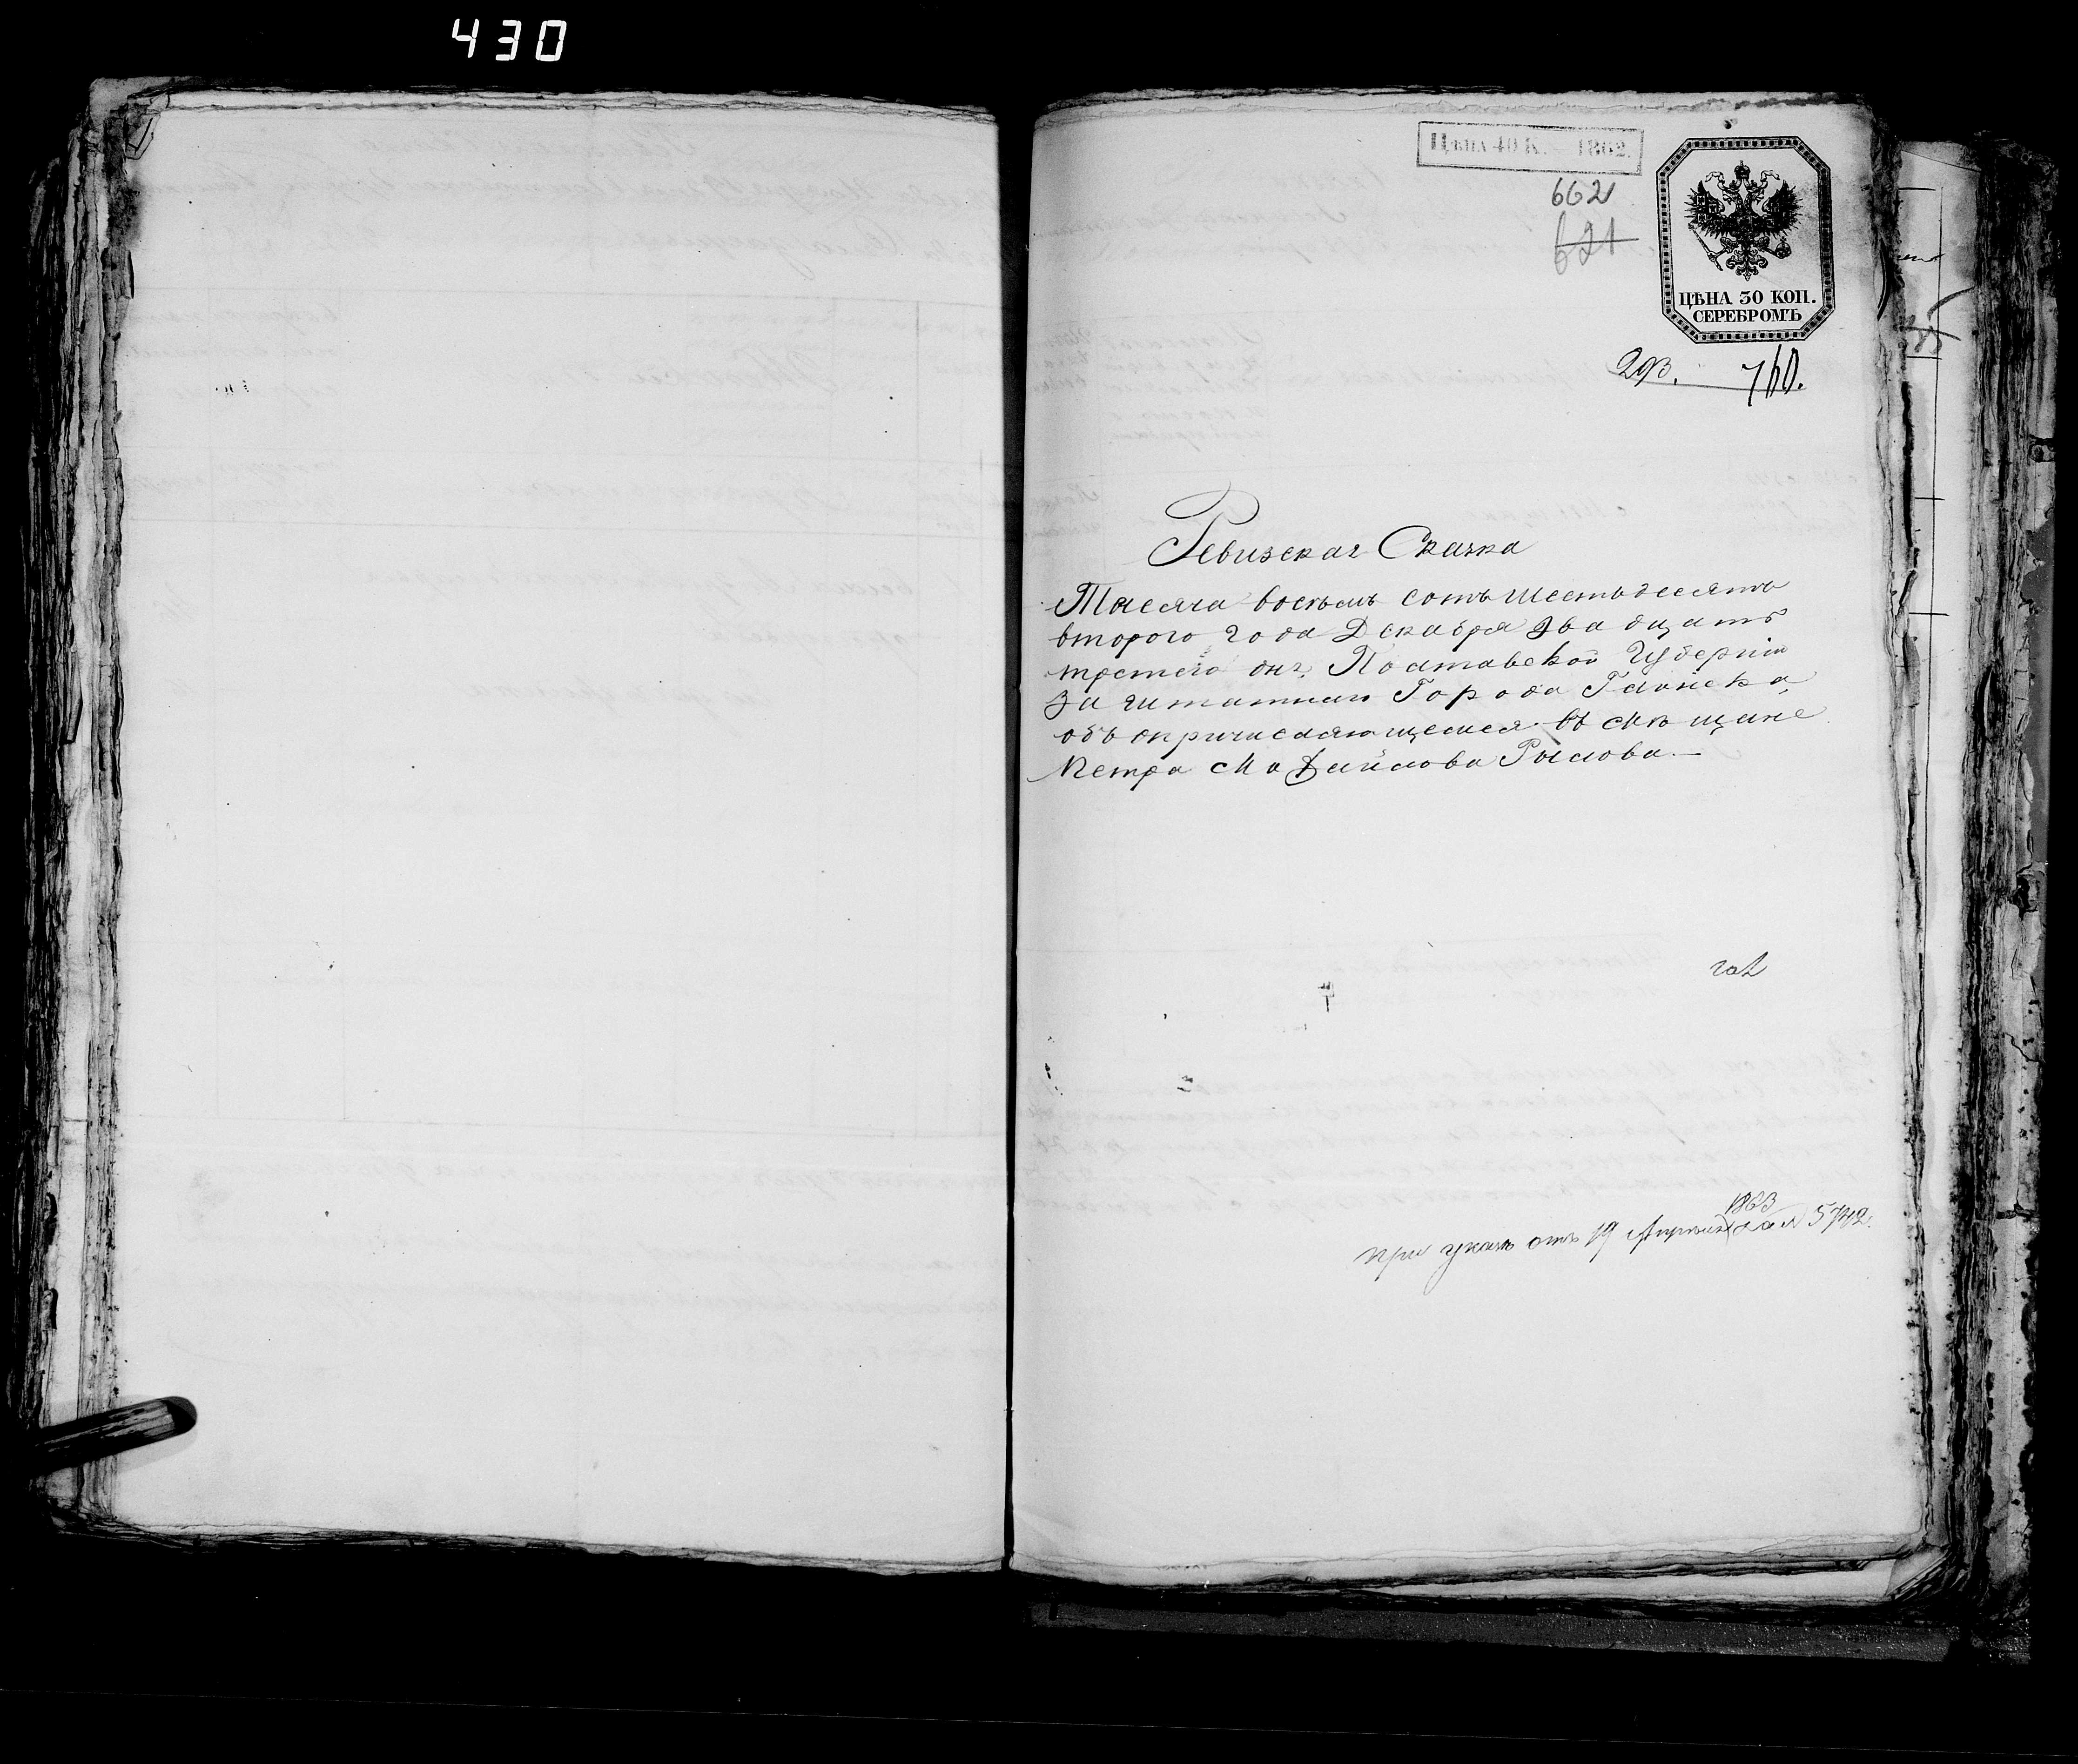 430
Цѣна 40 К. 1862.
662
621
ЦѢНА 30 КОП.
СЕРЕБРОМЪ
293. 760.
Ревизская Сказка
Тысяча восемь сотъ шестьдесятъ
второго года Декабря двадцать
третего дня, Полтавской Губерніи
Заштатнаго Города Глинска,
объ опричисляющемся въ мѣщане
Петра Михайлова Рылова.—
при указѣ отъ 19 Апрѣля 1863 года № 5742.